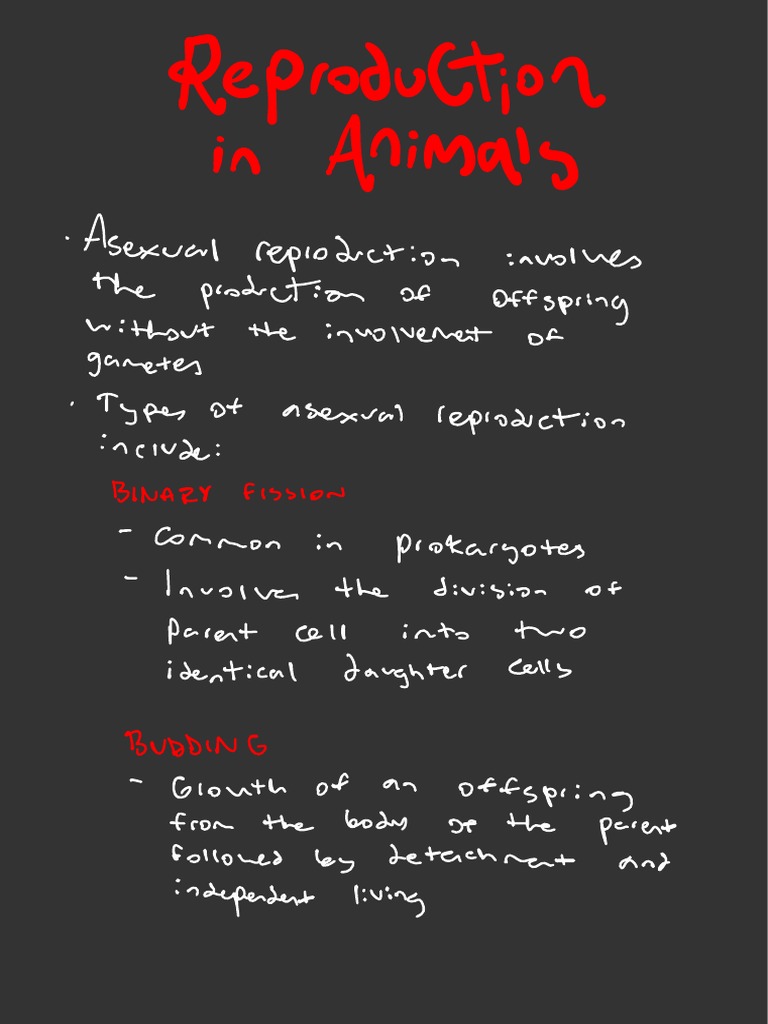 Reproduction
in Animals
· Asexual reproduction involves
the production of offspring
without the involvement of
gametes
· Types of asexual reproduction
include:
BINARY FISSION
- Common in prokaryotes
- Involves the division of
parent cell into two
identical daughter cells
BUDDING
- Growth of an offspring
from the body of the parent
followed by detachment and
independent living